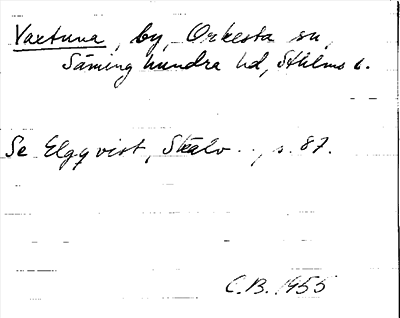 Vaxtuna, by, Orkesta sn,
Seminghundra hd, Sthlms l.
Se Elgqvist, Skälv..., s. 87.
C.B. 1955